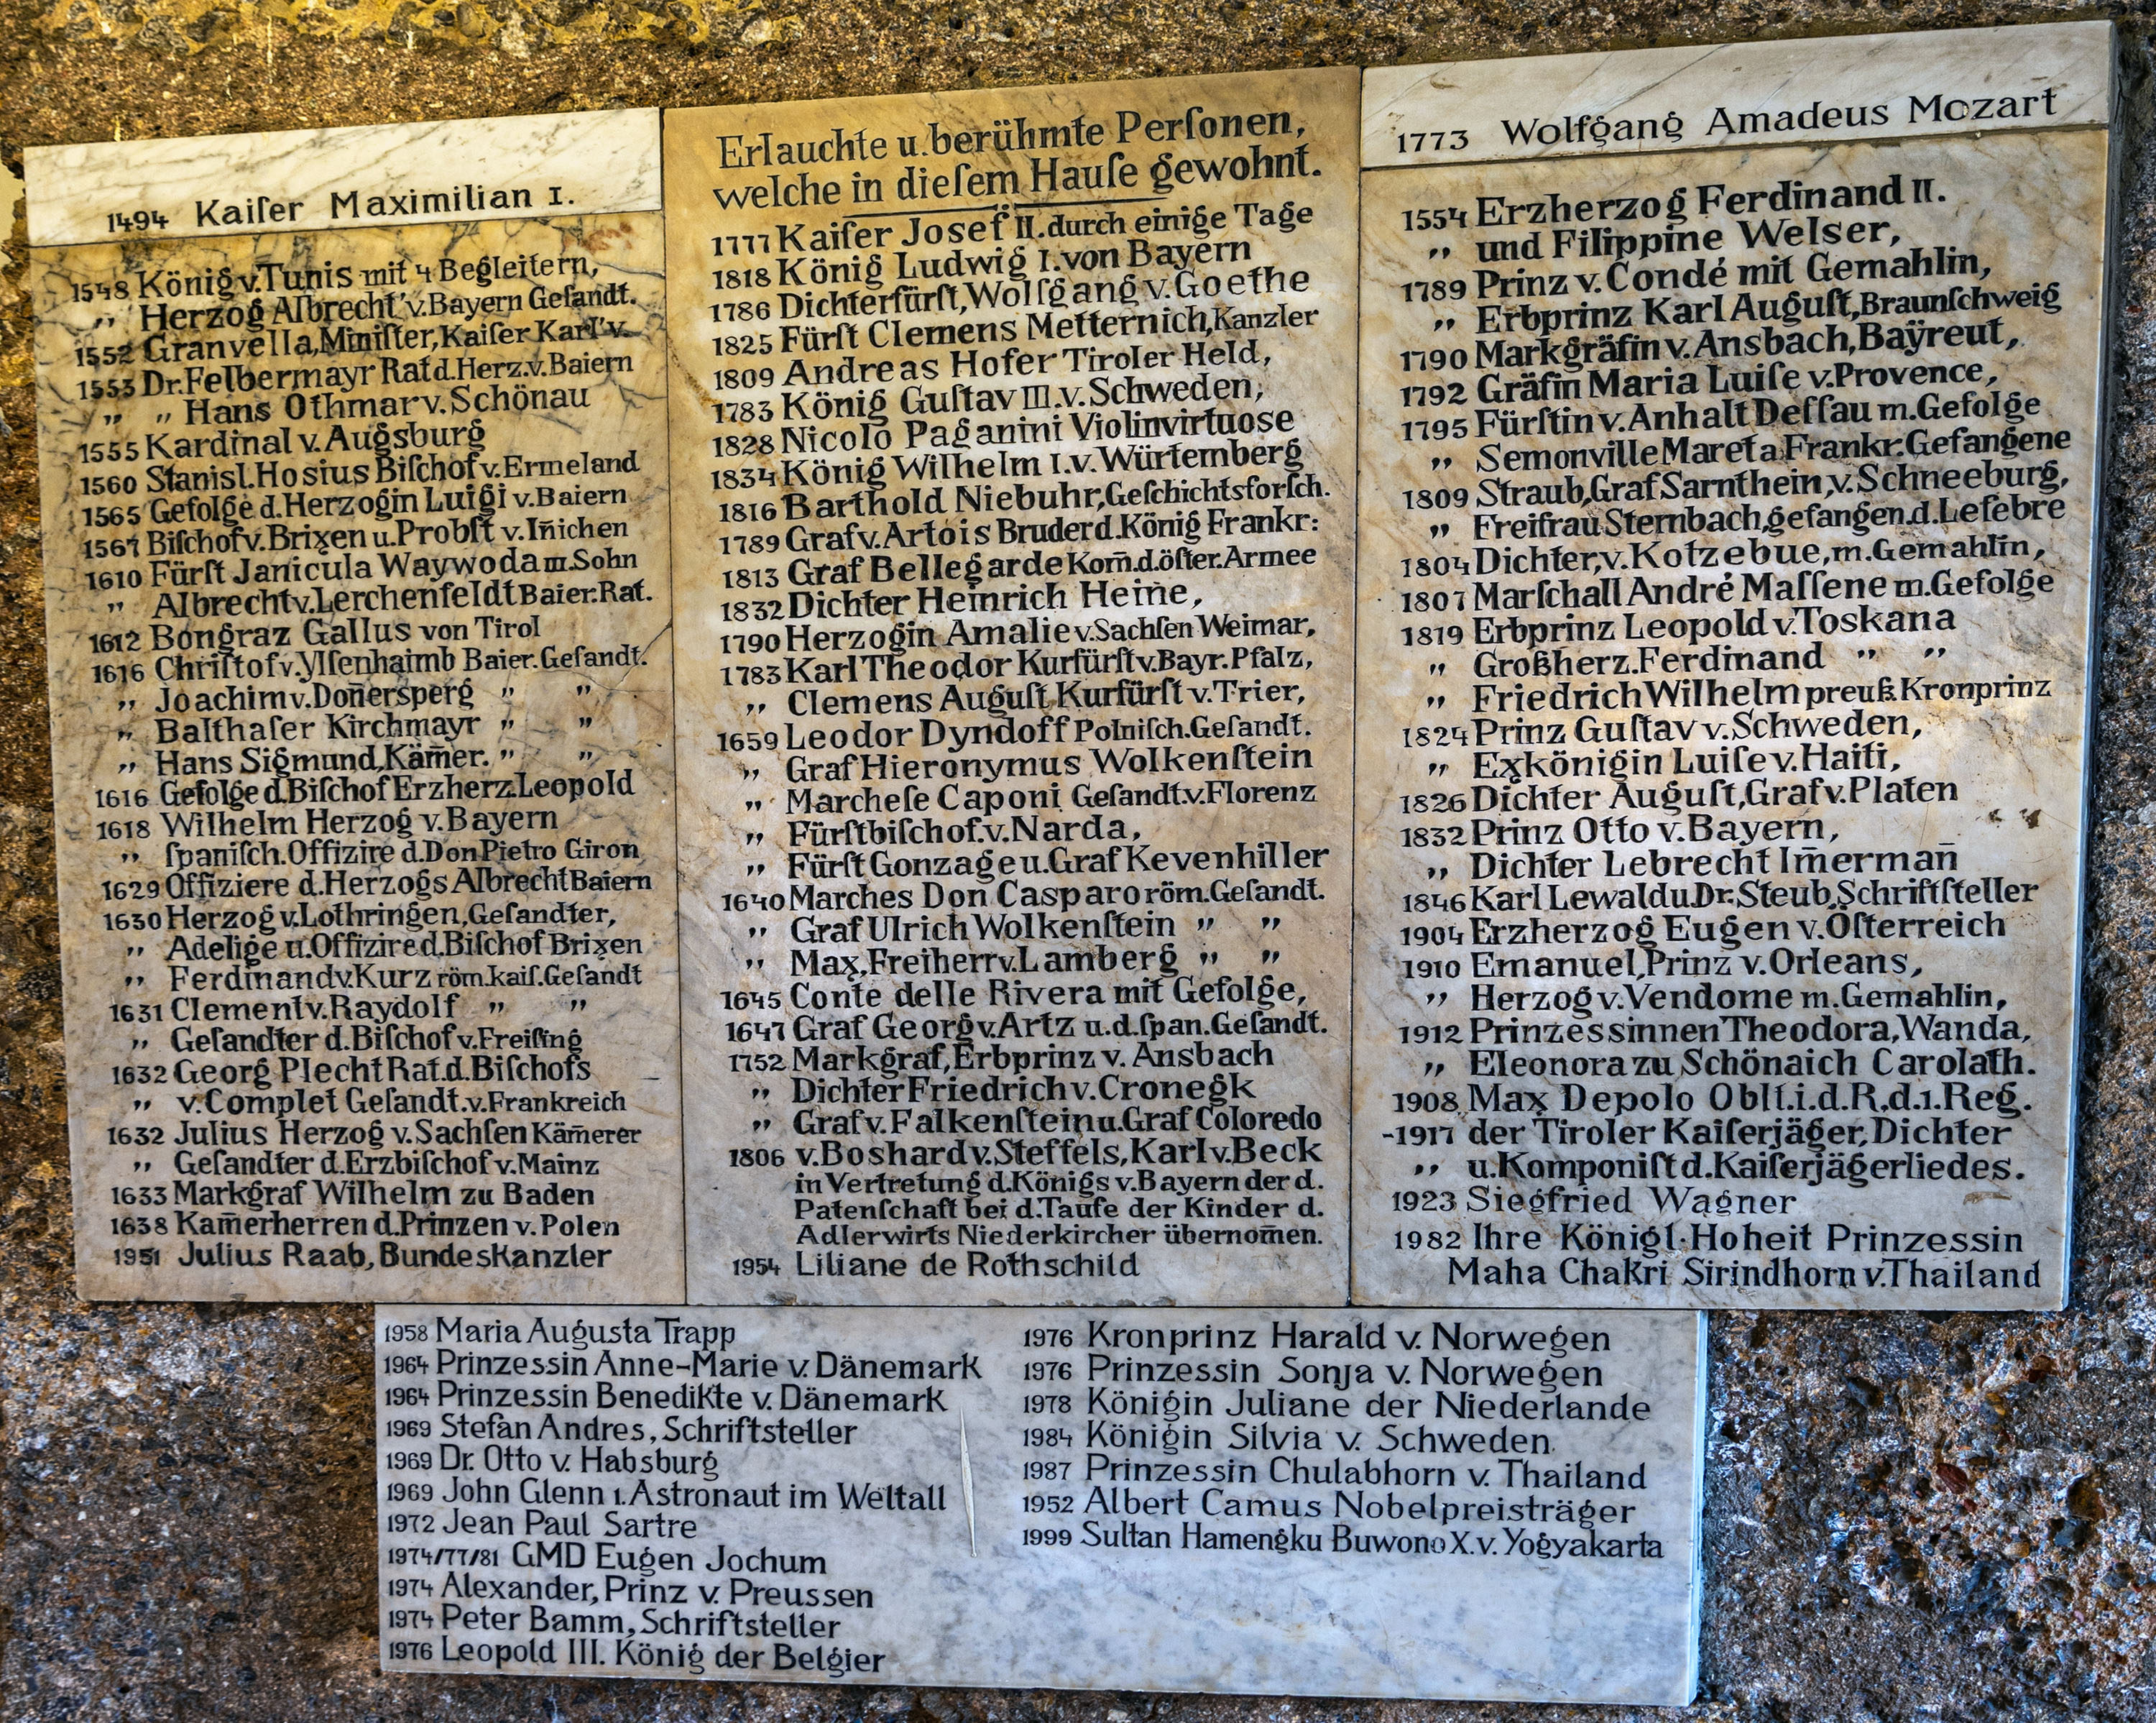 1494 Kaiſer Maximilian I.
1548 König v. Tunis mit 4 Begleitern,
" Herzog Albrecht v. Bayern Geſandt.
1552 Granvella, Miniſter, Kaiſer Karl v.
1553 Dr. Felbermayr Rat d. Herz. v. Baiern
" " Hans Othmar v. Schönau
1555 Kardinal v. Augsburg
1560 Stanisl. Hosius Biſchof v. Ermeland
1565 Gefolge d. Herzogin Luigi v. Baiern
1567 Biſchof v. Brixen u. Probſt v. Iñichen
1610 Fürſt Janicula Waywoda m. Sohn
" Albrecht v. Lerchenfeldt Baier. Rat.
1612 Bongraz Gallus von Tirol
1616 Chriſtof v. Ylſenhaimb Baier. Geſandt.
" Joachim v. Doñersperg " "
" Balthaſer Kirchmayr " "
" Hans Sigmund, Käm̄er. " "
1616 Gefolge d. Biſchof Erzherz. Leopold
1618 Wilhelm Herzog v. Bayern
" ſpaniſch. Offizire d. Don Pietro Giron
1629 Offiziere d. Herzogs Albrecht Baiern
1630 Herzog v. Lothringen, Geſandter,
" Adelige u. Offizire d. Biſchof Brixen
" Ferdinand v. Kurz röm. kaiſ. Geſandt
1631 Clement v. Raydolf " "
" Geſandter d. Biſchof v. Freiſing
1632 Georg Plecht Rat. d. Biſchofs
" v. Complet Geſandt. v. Frankreich
1632 Julius Herzog v. Sachſen Käm̄erer
" Geſandter d. Erzbiſchof v. Mainz
1633 Markgraf Wilhelm zu Baden
1638 Kam̄erherren d. Prinzen v. Polen
1951 Julius Raab, Bundeskanzler
Erlauchte u. berühmte Perſonen,
welche in dieſem Hauſe gewohnt.
1777 Kaiſer Josef II. durch einige Tage
1818 König Ludwig I. von Bayern
1786 Dichterfürſt, Wolfgang v. Goethe
1825 Fürſt Clemens Metternich, Kanzler
1809 Andreas Hofer Tiroler Held,
1783 König Guſtav III. v. Schweden,
1828 Nicolo Paganini Violinvirtuose
1834 König Wilhelm I. v. Würtemberg
1816 Barthold Niebuhr, Geſchichtsforſch.
1789 Graf v. Artois Bruder d. König Frankr:
1813 Graf Bellegarde Kom̄. d. öſter. Armee
1832 Dichter Heinrich Heine,
1790 Herzogin Amalie v. Sachſen Weimar,
1783 Karl Theodor Kurfürſt v. Bayr. Pfalz,
" Clemens Auguſt, Kurfürſt v. Trier,
1659 Leodor Dyndoff Polniſch. Geſandt.
" Graf Hieronymus Wolkenſtein
" Marcheſe Caponi Geſandt. v. Florenz
" Fürſtbiſchof. v. Narda,
" Fürſt Gonzage u. Graf Kevenhiller
1640 Marches Don Casparo röm. Geſandt.
" Graf Ulrich Wolkenſtein " "
" Max, Freiherr v. Lamberg " "
1645 Conte delle Rivera mit Gefolge,
1647 Graf Georg v. Artz u. d. ſpan. Geſandt.
1752 Markgraf, Erbprinz v. Ansbach
" Dichter Friedrich v. Cronegk
" Graf v. Falkenſtein u. Graf Coloredo
1806 v. Boshard v. Steffels, Karl v. Beck
in Vertretung d. Königs v. Bayern der d.
Patenſchaft bei d. Taufe der Kinder d.
Adlerwirts Niederkircher übernom̄en.
1954 Liliane de Rothschild
1773 Wolfgang Amadeus Mozart
1554 Erzherzog Ferdinand II.
" und Filippine Welser,
1789 Prinz v. Condé mit Gemahlin,
" Erbprinz Karl Auguſt, Braunſchweig
1790 Markgräfin v. Ansbach, Baÿreut,
1792 Gräfin Maria Luiſe v. Provence,
1795 Fürſtin v. Anhalt Deſſau m. Gefolge
" Semonville Maret a. Frankr. Gefangene
1809 Straub, Graf Sarnthein, v. Schneeburg,
" Freifrau Sternbach, gefangen. d. Lefebre
1804 Dichter, v. Kotzebue, m. Gemahlin,
1807 Marſchall André Maſſene m. Gefolge
1819 Erbprinz Leopold v. Toskana
" Großherz. Ferdinand " "
" Friedrich Wilhelm preuß. Kronprinz
1824 Prinz Guſtav v. Schweden,
" Exkönigin Luiſe v. Haiti,
1826 Dichter Auguſt, Graf v. Platen
1832 Prinz Otto v. Bayern,
" Dichter Lebrecht Im̄ermañ
1846 Karl Lewald u. Dr. Steub, Schriftſteller
1904 Erzherzog Eugen v. Öſterreich
1910 Emanuel, Prinz v. Orleans,
" Herzog v. Vendome m. Gemahlin,
1912 Prinzessinnen Theodora, Wanda,
" Eleonora zu Schönaich Carolath.
1908 Max Depolo Oblt. i. d. R. d. 1. Reg.
-1917 der Tiroler Kaiſerjäger, Dichter
" u. Komponiſt d. Kaiſerjägerliedes.
1923 Siegfried Wagner
1982 Ihre Königl. Hoheit Prinzessin
Maha Chakri Sirindhorn v. Thailand
1958 Maria Augusta Trapp
1964 Prinzessin Anne-Marie v. Dänemark
1964 Prinzessin Benedikte v. Dänemark
1969 Stefan Andres, Schriftsteller
1969 Dr. Otto v. Habsburg
1969 John Glenn 1. Astronaut im Weltall
1972 Jean Paul Sartre
1974/77/81 GMD Eugen Jochum
1974 Alexander, Prinz v. Preussen
1974 Peter Bamm, Schriftsteller
1976 Leopold III. König der Belgier
1976 Kronprinz Harald v. Norwegen
1976 Prinzessin Sonja v. Norwegen
1978 Königin Juliane der Niederlande
1984 Königin Silvia v. Schweden
1987 Prinzessin Chulabhorn v. Thailand
1952 Albert Camus Nobelpreisträger
1999 Sultan Hamengku Buwono X. v. Yogyakarta